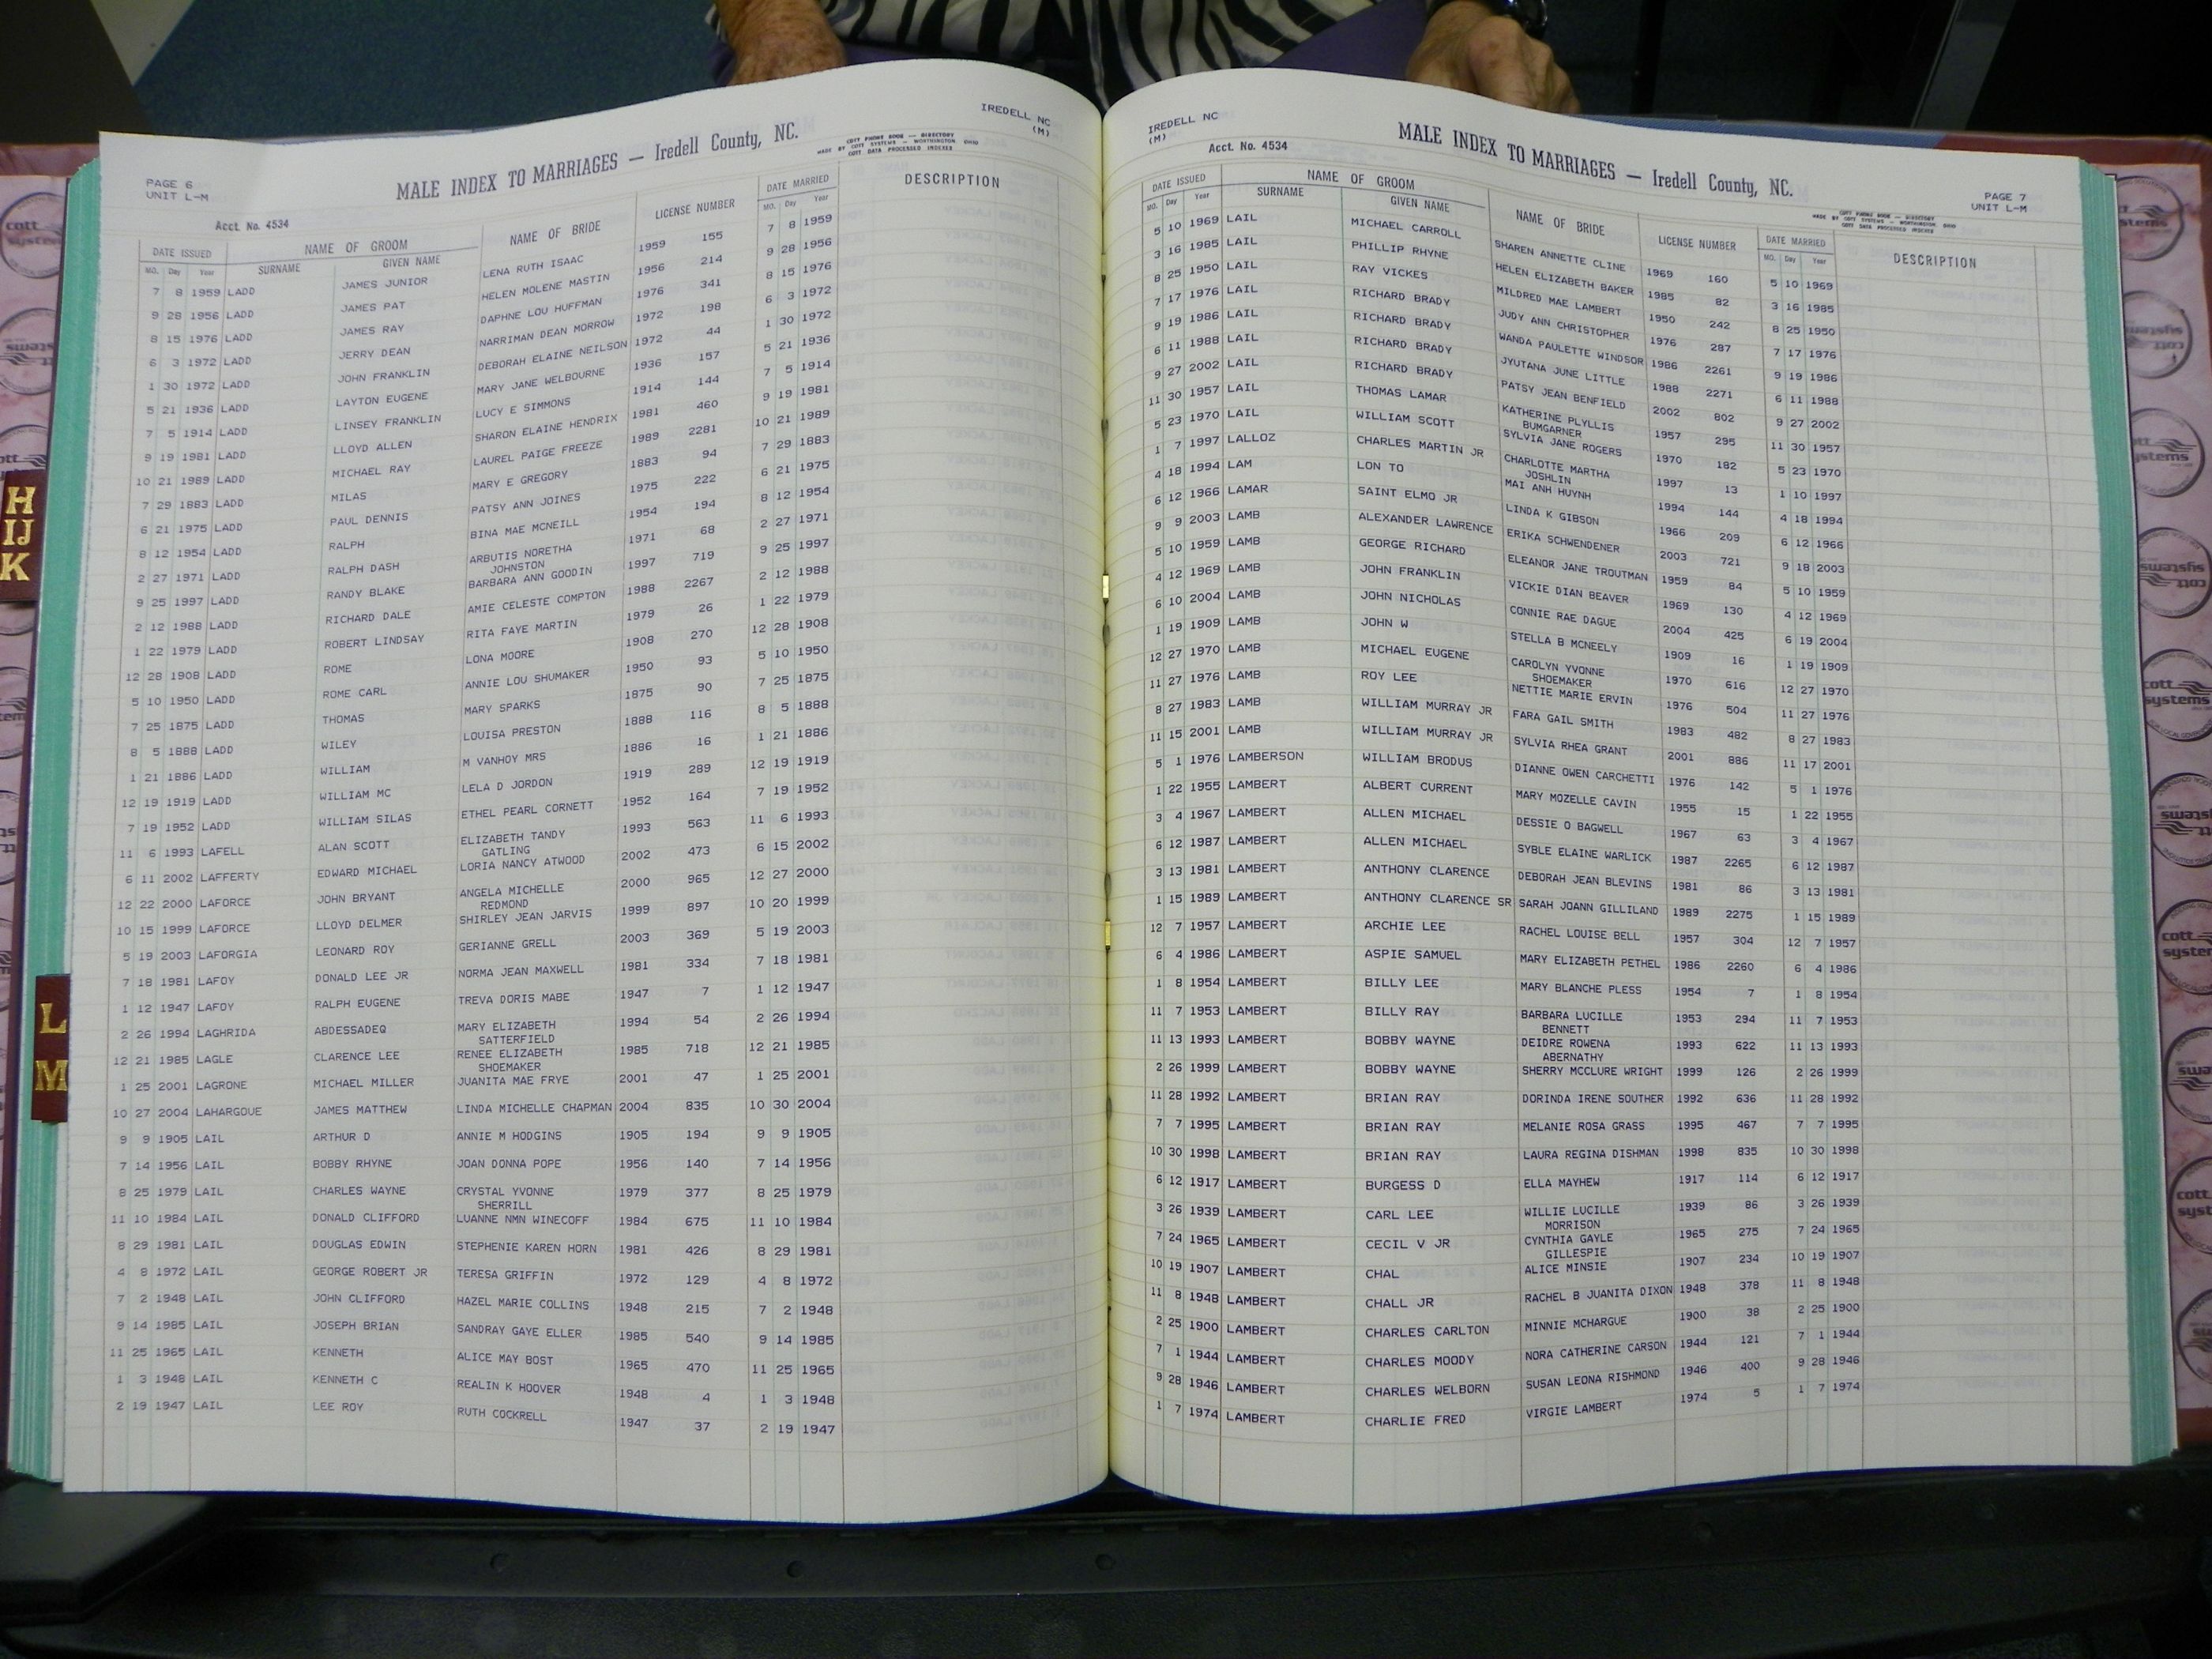 IREDELL NC
(M)
MALE INDEX TO MARRIAGES — Iredell County, NC.
COTT PHONE BOOK — DIRECTORY
MADE BY COTT SYSTEMS — WORTHINGTON OHIO
COTT DATA PROCESSED INDEXES
PAGE 6
UNIT L-M
Acct. No. 4534
DATE ISSUED NAME OF GROOM NAME OF BRIDE LICENSE NUMBER DATE MARRIED DESCRIPTION
MO. Day Year SURNAME GIVEN NAME MO. Day Year
7 8 1959 LADD JAMES JUNIOR LENA RUTH ISAAC 1959 155 7 8 1959
9 28 1956 LADD JAMES PAT HELEN MOLENE MASTIN 1956 214 9 28 1956
8 15 1976 LADD JAMES RAY DAPHNE LOU HUFFMAN 1976 341 8 15 1976
6 3 1972 LADD JERRY DEAN NARRIMAN DEAN MORROW 1972 198 6 3 1972
1 30 1972 LADD JOHN FRANKLIN DEBORAH ELAINE NEILSON 1972 44 1 30 1972
5 21 1936 LADD LAYTON EUGENE MARY JANE WELBOURNE 1936 157 5 21 1936
7 5 1914 LADD LINSEY FRANKLIN LUCY E SIMMONS 1914 144 7 5 1914
9 19 1981 LADD LLOYD ALLEN SHARON ELAINE HENDRIX 1981 460 9 19 1981
10 21 1989 LADD MICHAEL RAY LAUREL PAIGE FREEZE 1989 2281 10 21 1989
7 29 1883 LADD MILAS MARY E GREGORY 1883 94 7 29 1883
6 21 1975 LADD PAUL DENNIS PATSY ANN JOINES 1975 222 6 21 1975
8 12 1954 LADD RALPH BINA MAE MCNEILL 1954 194 8 12 1954
2 27 1971 LADD RALPH DASH ARBUTIS NORETHA 1971 68 2 27 1971
JOHNSTON
9 25 1997 LADD RANDY BLAKE BARBARA ANN GOODIN 1997 719 9 25 1997
2 12 1988 LADD RICHARD DALE AMIE CELESTE COMPTON 1988 2267 2 12 1988
1 22 1979 LADD ROBERT LINDSAY RITA FAYE MARTIN 1979 26 1 22 1979
12 28 1908 LADD ROME LONA MOORE 1908 270 12 28 1908
5 10 1950 LADD ROME CARL ANNIE LOU SHUMAKER 1950 93 5 10 1950
7 25 1875 LADD THOMAS MARY SPARKS 1875 90 7 25 1875
8 5 1888 LADD WILEY LOUISA PRESTON 1888 116 8 5 1888
1 21 1886 LADD WILLIAM M VANHOY MRS 1886 16 1 21 1886
12 19 1919 LADD WILLIAM MC LELA D JORDON 1919 289 12 19 1919
7 19 1952 LADD WILLIAM SILAS ETHEL PEARL CORNETT 1952 164 7 19 1952
11 6 1993 LAFELL ALAN SCOTT ELIZABETH TANDY 1993 563 11 6 1993
GATLING
6 11 2002 LAFFERTY EDWARD MICHAEL LORIA NANCY ATWOOD 2002 473 6 15 2002
12 22 2000 LAFORCE JOHN BRYANT ANGELA MICHELLE 2000 965 12 27 2000
REDMOND
10 15 1999 LAFORCE LLOYD DELMER SHIRLEY JEAN JARVIS 1999 897 10 20 1999
5 19 2003 LAFORGIA LEONARD ROY GERIANNE GRELL 2003 369 5 19 2003
7 18 1981 LAFOY DONALD LEE JR NORMA JEAN MAXWELL 1981 334 7 18 1981
1 12 1947 LAFOY RALPH EUGENE TREVA DORIS MABE 1947 7 1 12 1947
2 26 1994 LAGHRIDA ABDESSADEQ MARY ELIZABETH 1994 54 2 26 1994
SATTERFIELD
12 21 1985 LAGLE CLARENCE LEE RENEE ELIZABETH 1985 718 12 21 1985
SHOEMAKER
1 25 2001 LAGRONE MICHAEL MILLER JUANITA MAE FRYE 2001 47 1 25 2001
10 27 2004 LAHARGOUE JAMES MATTHEW LINDA MICHELLE CHAPMAN 2004 835 10 30 2004
9 9 1905 LAIL ARTHUR D ANNIE M HODGINS 1905 194 9 9 1905
7 14 1956 LAIL BOBBY RHYNE JOAN DONNA POPE 1956 140 7 14 1956
8 25 1979 LAIL CHARLES WAYNE CRYSTAL YVONNE 1979 377 8 25 1979
SHERRILL
11 10 1984 LAIL DONALD CLIFFORD LUANNE NMN WINECOFF 1984 675 11 10 1984
8 29 1981 LAIL DOUGLAS EDWIN STEPHENIE KAREN HORN 1981 426 8 29 1981
4 8 1972 LAIL GEORGE ROBERT JR TERESA GRIFFIN 1972 129 4 8 1972
7 2 1948 LAIL JOHN CLIFFORD HAZEL MARIE COLLINS 1948 215 7 2 1948
9 14 1985 LAIL JOSEPH BRIAN SANDRAY GAYE ELLER 1985 540 9 14 1985
11 25 1965 LAIL KENNETH ALICE MAY BOST 1965 470 11 25 1965
1 3 1948 LAIL KENNETH C REALIN K HOOVER 1948 4 1 3 1948
2 19 1947 LAIL LEE ROY RUTH COCKRELL 1947 37 2 19 1947
IREDELL NC
(M)
Acct. No. 4534
MALE INDEX TO MARRIAGES — Iredell County, NC.
COTT PHONE BOOK — DIRECTORY
MADE BY COTT SYSTEMS — WORTHINGTON OHIO
COTT DATA PROCESSED INDEXES
PAGE 7
UNIT L-M
DATE ISSUED NAME OF GROOM NAME OF BRIDE LICENSE NUMBER DATE MARRIED DESCRIPTION
MO. Day Year SURNAME GIVEN NAME MO. Day Year
5 10 1969 LAIL MICHAEL CARROLL SHAREN ANNETTE CLINE 1969 160 5 10 1969
3 16 1985 LAIL PHILLIP RHYNE HELEN ELIZABETH BAKER 1985 82 3 16 1985
8 25 1950 LAIL RAY VICKES MILDRED MAE LAMBERT 1950 242 8 25 1950
7 17 1976 LAIL RICHARD BRADY JUDY ANN CHRISTOPHER 1976 287 7 17 1976
9 19 1986 LAIL RICHARD BRADY WANDA PAULETTE WINDSOR 1986 2261 9 19 1986
6 11 1988 LAIL RICHARD BRADY JYUTANA JUNE LITTLE 1988 2271 6 11 1988
9 27 2002 LAIL RICHARD BRADY PATSY JEAN BENFIELD 2002 802 9 27 2002
11 30 1957 LAIL THOMAS LAMAR KATHERINE PLYLLIS 1957 295 11 30 1957
BUMGARNER
5 23 1970 LAIL WILLIAM SCOTT SYLVIA JANE ROGERS 1970 182 5 23 1970
1 7 1997 LALLOZ CHARLES MARTIN JR CHARLOTTE MARTHA 1997 13 1 10 1997
JOSHLIN
4 18 1994 LAM LON TO MAI ANH HUYNH 1994 144 4 18 1994
6 12 1966 LAMAR SAINT ELMO JR LINDA K GIBSON 1966 209 6 12 1966
9 9 2003 LAMB ALEXANDER LAWRENCE ERIKA SCHWENDENER 2003 721 9 18 2003
5 10 1959 LAMB GEORGE RICHARD ELEANOR JANE TROUTMAN 1959 84 5 10 1959
4 12 1969 LAMB JOHN FRANKLIN VICKIE DIAN BEAVER 1969 130 4 12 1969
6 10 2004 LAMB JOHN NICHOLAS CONNIE RAE DAGUE 2004 425 6 19 2004
1 19 1909 LAMB JOHN W STELLA B MCNEELY 1909 16 1 19 1909
12 27 1970 LAMB MICHAEL EUGENE CAROLYN YVONNE 1970 616 12 27 1970
SHOEMAKER
11 27 1976 LAMB ROY LEE NETTIE MARIE ERVIN 1976 504 11 27 1976
8 27 1983 LAMB WILLIAM MURRAY JR FARA GAIL SMITH 1983 482 8 27 1983
11 15 2001 LAMB WILLIAM MURRAY JR SYLVIA RHEA GRANT 2001 886 11 17 2001
5 1 1976 LAMBERSON WILLIAM BRODUS DIANNE OWEN CARCHETTI 1976 142 5 1 1976
1 22 1955 LAMBERT ALBERT CURRENT MARY MOZELLE CAVIN 1955 15 1 22 1955
3 4 1967 LAMBERT ALLEN MICHAEL DESSIE O BAGWELL 1967 63 3 4 1967
6 12 1987 LAMBERT ALLEN MICHAEL SYBLE ELAINE WARLICK 1987 2265 6 12 1987
3 13 1981 LAMBERT ANTHONY CLARENCE DEBORAH JEAN BLEVINS 1981 86 3 13 1981
1 15 1989 LAMBERT ANTHONY CLARENCE SR SARAH JOANN GILLILAND 1989 2275 1 15 1989
12 7 1957 LAMBERT ARCHIE LEE RACHEL LOUISE BELL 1957 304 12 7 1957
6 4 1986 LAMBERT ASPIE SAMUEL MARY ELIZABETH PETHEL 1986 2260 6 4 1986
1 8 1954 LAMBERT BILLY LEE MARY BLANCHE PLESS 1954 7 1 8 1954
11 7 1953 LAMBERT BILLY RAY BARBARA LUCILLE 1953 294 11 7 1953
BENNETT
11 13 1993 LAMBERT BOBBY WAYNE DEIDRE ROWENA 1993 622 11 13 1993
ABERNATHY
2 26 1999 LAMBERT BOBBY WAYNE SHERRY MCCLURE WRIGHT 1999 126 2 26 1999
11 28 1992 LAMBERT BRIAN RAY DORINDA IRENE SOUTHER 1992 636 11 28 1992
7 7 1995 LAMBERT BRIAN RAY MELANIE ROSA GRASS 1995 467 7 7 1995
10 30 1998 LAMBERT BRIAN RAY LAURA REGINA DISHMAN 1998 835 10 30 1998
6 12 1917 LAMBERT BURGESS D ELLA MAYHEW 1917 114 6 12 1917
3 26 1939 LAMBERT CARL LEE WILLIE LUCILLE 1939 86 3 26 1939
MORRISON
7 24 1965 LAMBERT CECIL V JR CYNTHIA GAYLE 1965 275 7 24 1965
GILLESPIE
10 19 1907 LAMBERT CHAL ALICE MINSIE 1907 234 10 19 1907
11 8 1948 LAMBERT CHALL JR RACHEL B JUANITA DIXON 1948 378 11 8 1948
2 25 1900 LAMBERT CHARLES CARLTON MINNIE MCHARGUE 1900 38 2 25 1900
7 1 1944 LAMBERT CHARLES MOODY NORA CATHERINE CARSON 1944 121 7 1 1944
9 28 1946 LAMBERT CHARLES WELBORN SUSAN LEONA RISHMOND 1946 400 9 28 1946
1 7 1974 LAMBERT CHARLIE FRED VIRGIE LAMBERT 1974 5 1 7 1974
H
IJ
K
L
M
cott
systems